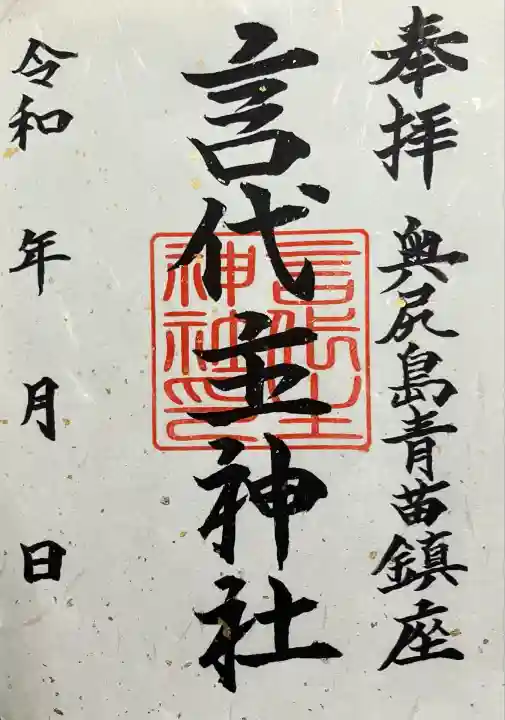 奉拝 奥尻島青苗鎮座
言代主神社
言代主神社印
令和 年 月 日